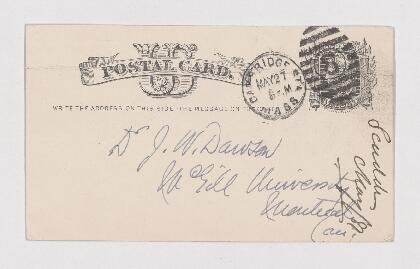 U.S.
POSTAL CARD.
CAMBRIDGE STA.
MAY 27
MASS
WRITE THE ADDRESS ON THIS SIDE - THE MESSAGE ON THE OTHER
Dr J. W. Dawson
McGill University
Montreal
Can.
Scudder